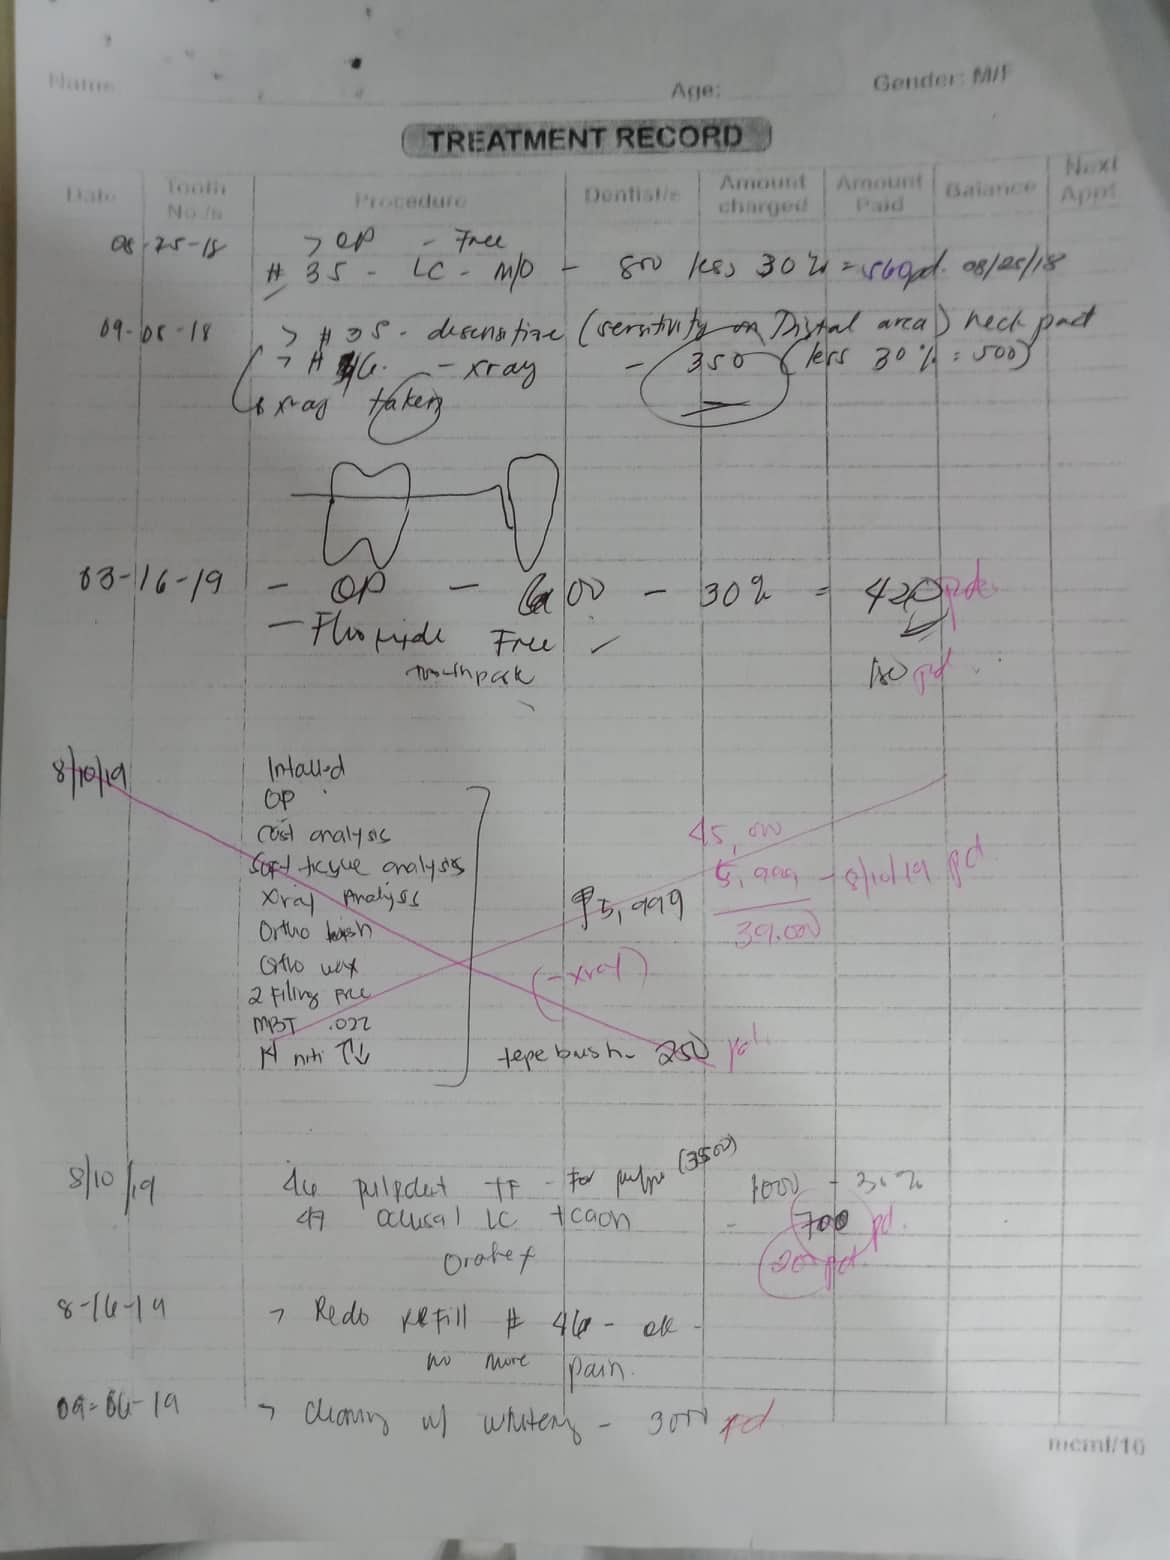 Name
Age:
Gender: M/F
TREATMENT RECORD
Date
Tooth No./s
Procedure
Dentist/s
Amount charged
Amount Paid
Balance
Next Appt
08-25-18 > OP - Free
# 35 - LC - M/O - 800 less 30% = 560 pd. 08/25/18
09-08-18 > # 35 - desensitize (sensitivity on Distal area) neck part
> # 46. - xray - 350 (less 30% = 500)
xray taken
03-16-19 - OP - 600 - 30% = 420 pd.
- Fluoride Free
toothpaste
180 pd.
8/10/19 Intalled
OP
Cast analysis
Soft ticyue analysis
Xray Analysis
Ortho brush
Ortho wax
2 Filing Free
MBT .022
14 niti ↑↓
₱5,999
45,000
5,999 - 8/10/19 pd.
39.000
(-xray)
tepe brush - 250 pd.
8/10/19 46 pulpdent TF - For pulpo (3500) 1000 - 30%
47 occlusal LC - 700 pd.
200 pd.
8-16-19 > Redo refill # 46 - ok -
no more pain.
09-06-19 > Cleaning w/ whitening - 3000 pd
mcml/16